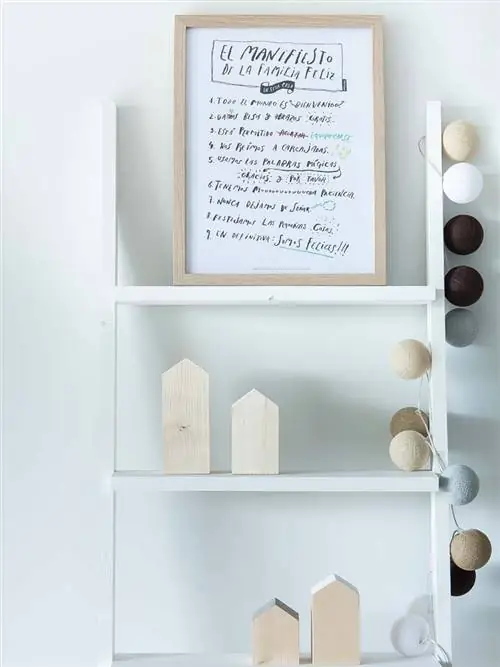 EL MANIFIESTO
DE LA FAMILIA FELIZ
EN ESTA CASA
1. TODO EL MUNDO ES "BIENVENIDO"
2. DAMOS BESOS Y ABRAZOS GRATIS.
3. ESTÁ PERMITIDO EQUIVOCARSE
4. NOS REÍMOS A CARCAJADAS.
5. USAMOS LAS PALABRAS MÁGICAS
GRACIAS Y POR FAVOR
6. TENEMOS MUUUUUUUUUCHA PACIENCIA.
7. NUNCA DEJAMOS DE SOÑAR
8. FESTEJAMOS LAS PEQUEÑAS COSAS.
9. EN DEFINITIVA: SOMOS FELICES!!!